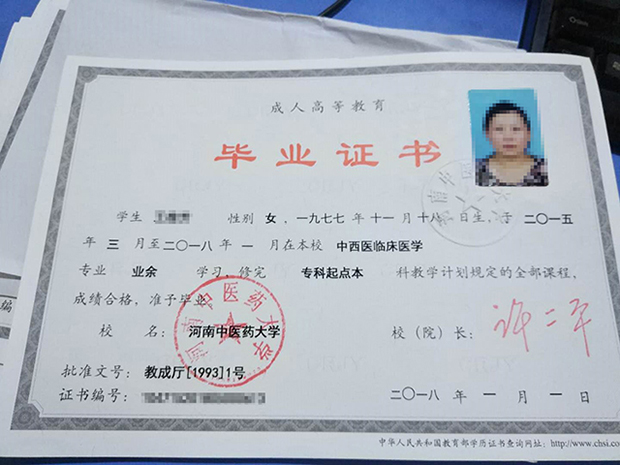 成人高等教育
毕业证书
学生 性别 女，一九七七年 十一 月 十八 日生，于 二〇一五
年 三 月至二〇一八年 一 月在本校 中西医临床医学
专业 业余 学习，修完 专科起点本 科教学计划规定的全部课程，
成绩合格，准予毕业。
校 名： 河南中医药大学 校（院）长： 许二平
批准文号： 教成厅[1993]1号
证书编号： 二〇一八 年 一 月 一 日
中华人民共和国教育部学历证书查询网址：http://www.chsi.com
河南中医药大学
编
Ctrl